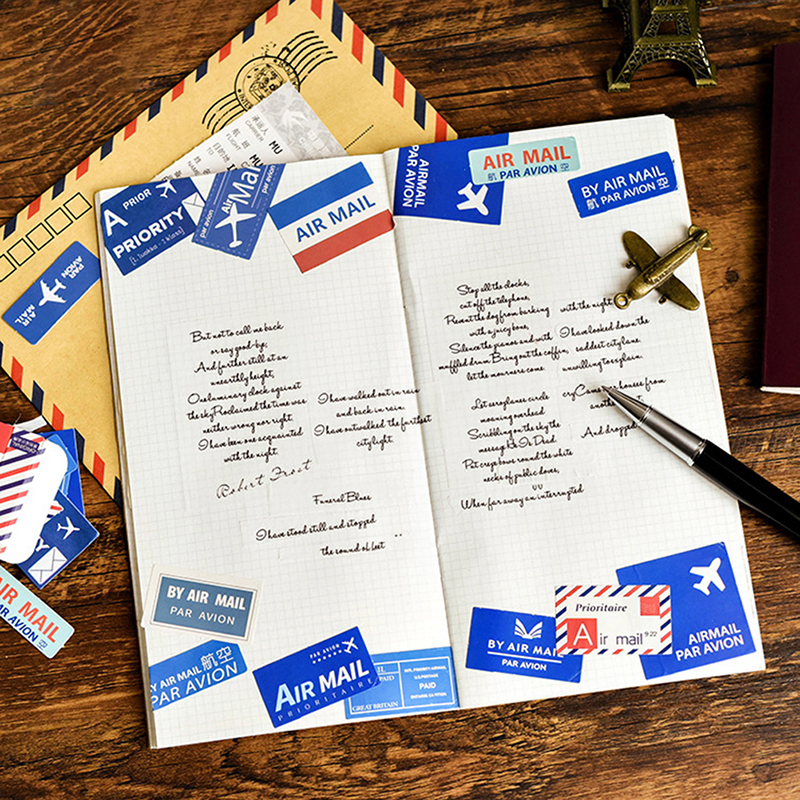 承运人 MU
CARRIER
航班 MU
FLIGHT
目的地
TO
姓名
A PRIOR
PRIORITY
[1. luokka - 1 klass]
par avion
Air Mail
par avion
AIR MAIL
AIRMAIL
PAR AVION
AIR MAIL
航 PAR AVION 空
BY AIR MAIL
航 PAR AVION 空
PAR AVION
AIR MAIL
But not to call me back
or say good-by;
And further still at an
unearthly height,
One luminary clock against
the sky Proclaimed the time was
neither wrong nor right.
I have been one acquainted
with the night.
Robert Frost
I have walked out in rain
and back in rain.
I have outwalked the furthest
city light.
Funeral Blues
I have stood still and stopped
the sound of feet
Stop all the clocks,
cut off the telephone,
Prevent the dog from barking
with a juicy bone,
Silence the pianos and with
muffled drum Bring out the coffin,
let the mourners come.
Let aeroplanes circle
moaning overhead
Scribbling on the sky the
message He Is Dead
Put crepe bows round the white
necks of public doves,
When far away an interrupted
with the night.
I have looked down the
saddest city lane.
unwilling to explain.
cry Came over houses from
another
And dropped
AIR MAIL
PAR AVION 航空
BY AIR MAIL
PAR AVION
BY AIR MAIL 航空
PAR AVION
PAR AVION
AIR MAIL
PRIORITAIRE
PAID
GREAT BRITAIN
INT'L PRIORITY AIRMAIL
U.S. POSTAGE
PAID
BY AIR MAIL
PAR AVION
Prioritaire
Air mail 9:22
AIRMAIL
PAR AVION